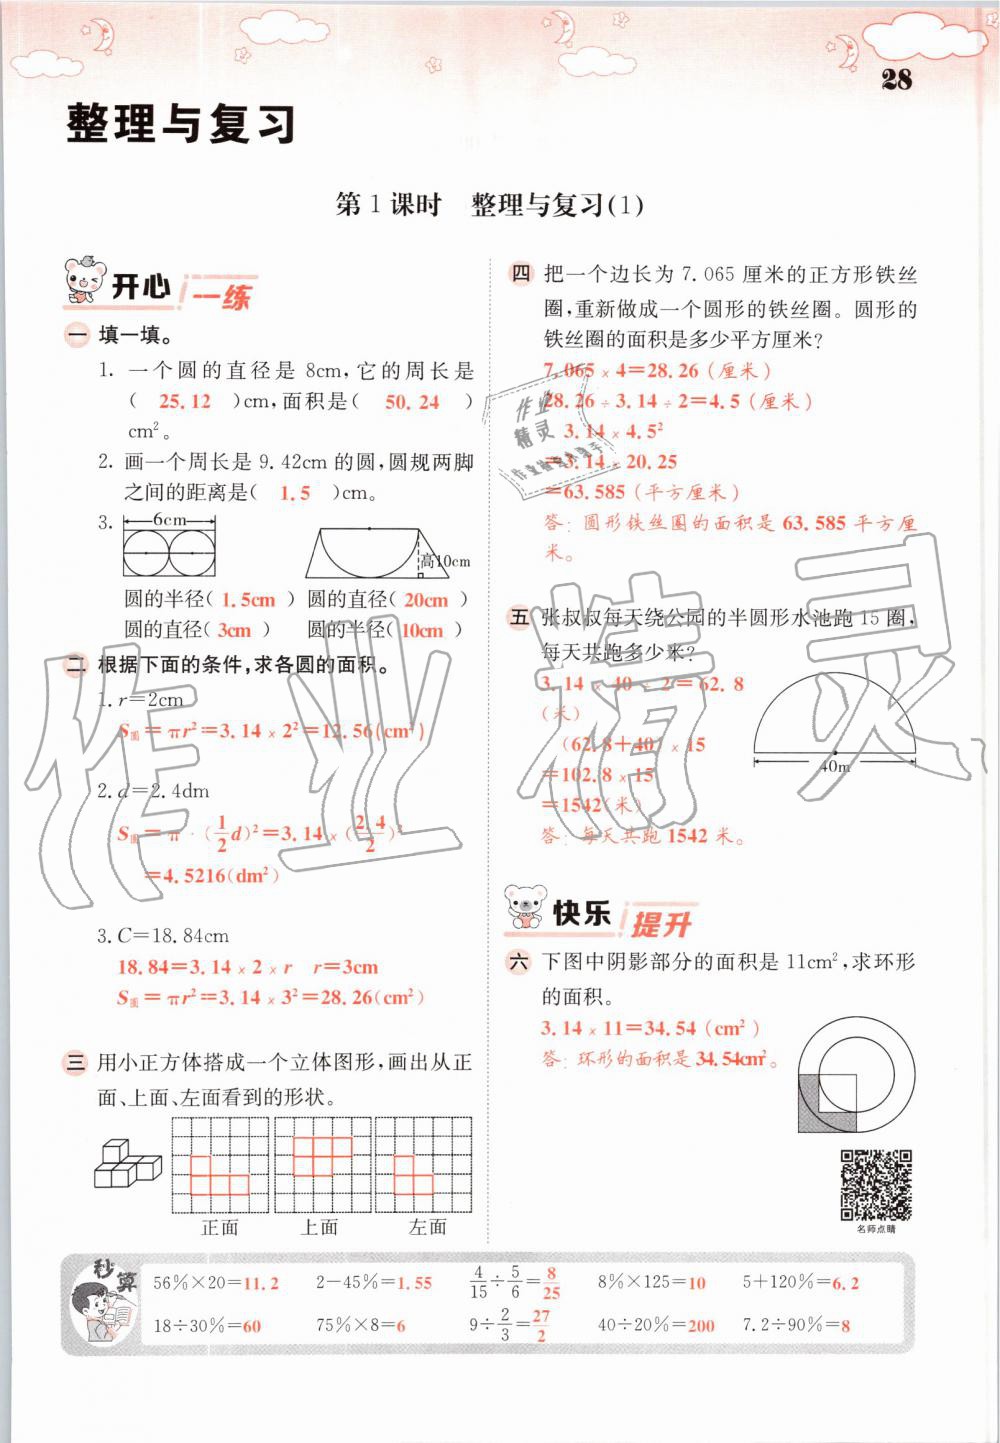 28
整理与复习
第1课时 整理与复习(1)
开心一练
一 填一填。
1. 一个圆的直径是8cm,它的周长是
( 25.12 )cm,面积是( 50.24 )
cm²。
2. 画一个周长是9.42cm的圆,圆规两脚
之间的距离是( 1.5 )cm。
3.
6cm
高10cm
圆的半径( 1.5cm ) 圆的直径( 20cm )
圆的直径( 3cm ) 圆的半径( 10cm )
二 根据下面的条件,求各圆的面积。
1. r=2cm
S圆=πr²=3.14×2²=12.56(cm²)
2. d=2.4dm
S圆=π·(1/2 d)²=3.14×(2.4/2)²
=4.5216(dm²)
3. C=18.84cm
18.84=3.14×2×r r=3cm
S圆=πr²=3.14×3²=28.26(cm²)
三 用小正方体搭成一个立体图形,画出从正
面、上面、左面看到的形状。
正面 上面 左面
四 把一个边长为7.065厘米的正方形铁丝
圈,重新做成一个圆形的铁丝圈。圆形的
铁丝圈的面积是多少平方厘米?
7.065×4=28.26(厘米)
28.26÷3.14÷2=4.5(厘米)
3.14×4.5²
=3.14×20.25
=63.585(平方厘米)
答:圆形铁丝圈的面积是63.585平方厘
米。
五 张叔叔每天绕公园的半圆形水池跑15圈,
每天共跑多少米?
3.14×40÷2=62.8
(米)
(62.8+40)×15
=102.8×15
=1542(米)
答:每天共跑1542米。
40m
快乐提升
六 下图中阴影部分的面积是11cm²,求环形
的面积。
3.14×11=34.54(cm²)
答:环形的面积是34.54cm²。
名师点睛
秒算
56%×20=11.2 2-45%=1.55 4/15÷5/6=8/25 8%×125=10 5+120%=6.2
18÷30%=60 75%×8=6 9÷2/3=27/2 40÷20%=200 7.2÷90%=8
作业精灵
作业
精灵